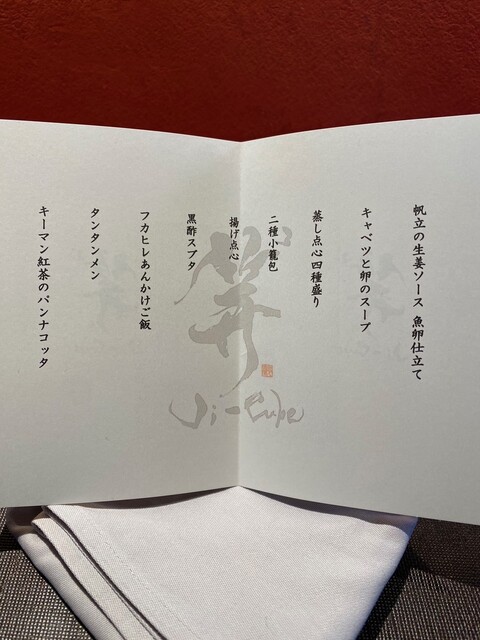 帆立の生姜ソース 魚卵仕立て
キャベツと卵のスープ
蒸し点心四種盛り
二種小籠包
揚げ点心
黒酢スブタ
フカヒレあんかけご飯
タンタンメン
キーマン紅茶のパンナコッタ
Ji-Cube